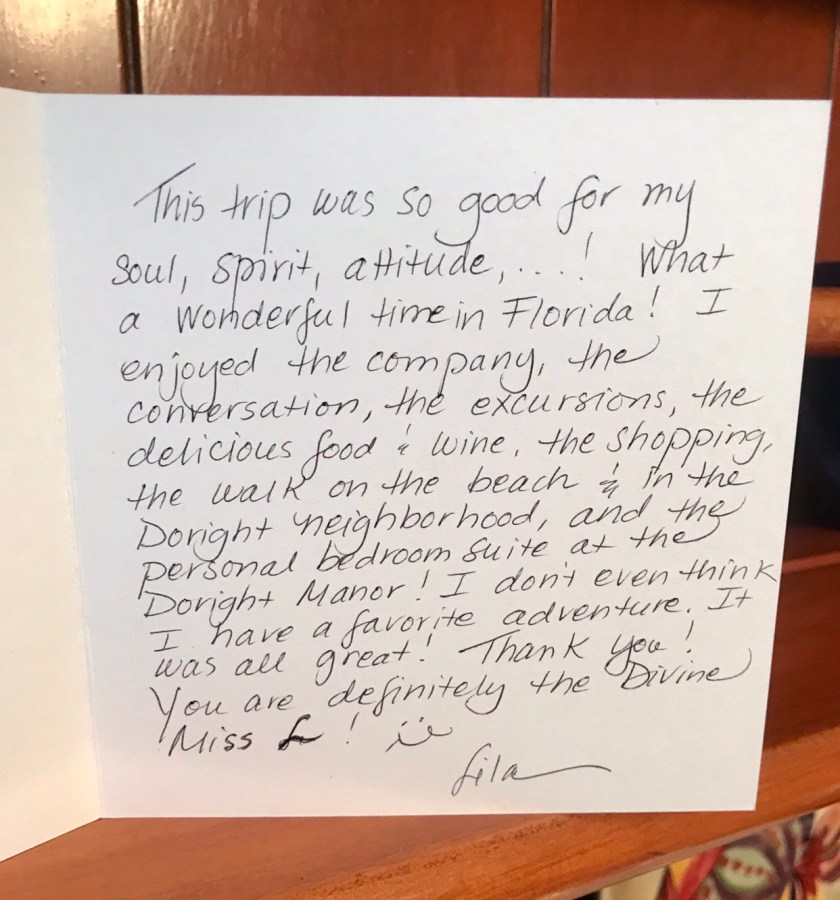 This trip was so good for my
soul, spirit, attitude, ....! What
a wonderful time in Florida! I
enjoyed the company, the
conversation, the excursions, the
delicious food & wine, the shopping,
the walk on the beach & in the
Doright neighborhood, and the
personal bedroom suite at the
Doright Manor! I don't even think
I have a favorite adventure. It
was all great! Thank you!
You are definitely the Divine
Miss L! :)
Lila